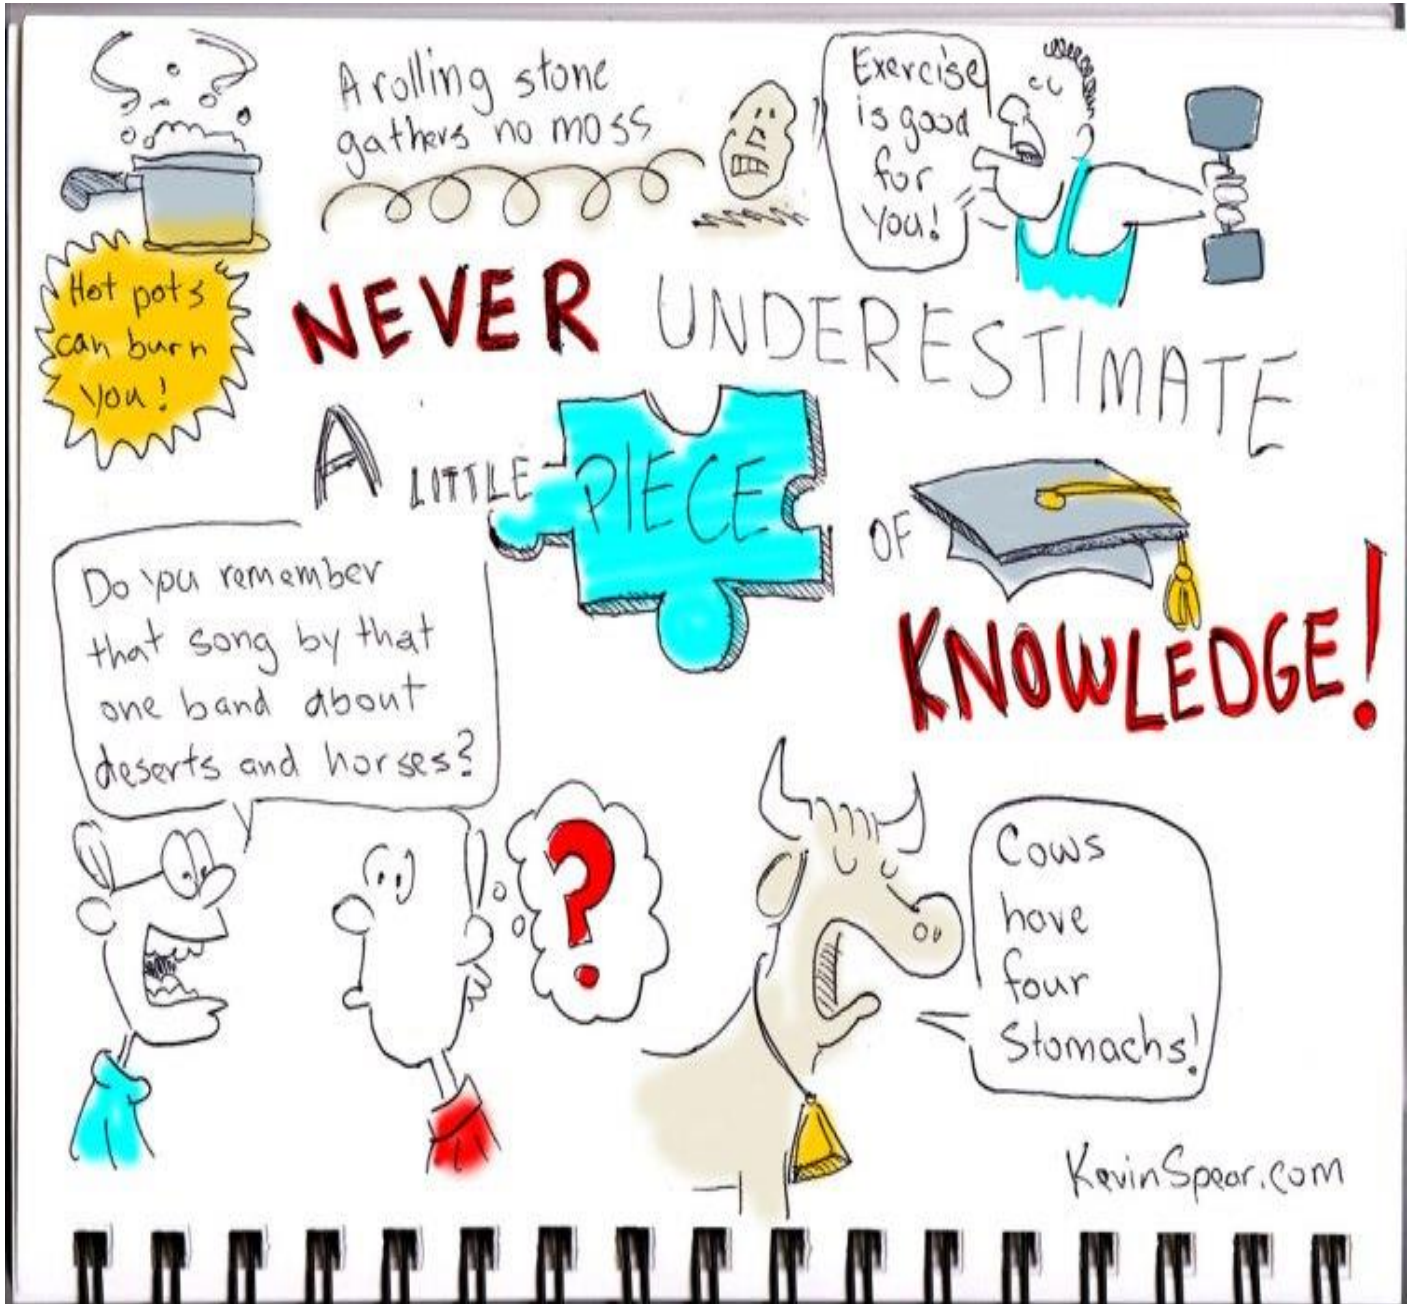 A rolling stone
gathers no moss
Exercise
is good
for
you!
Hot pots
can burn
you!
NEVER UNDERESTIMATE
A LITTLE PIECE
OF
KNOWLEDGE!
Do you remember
that song by that
one band about
deserts and horses?
?
Cows
have
four
Stomachs!
KevinSpear.com